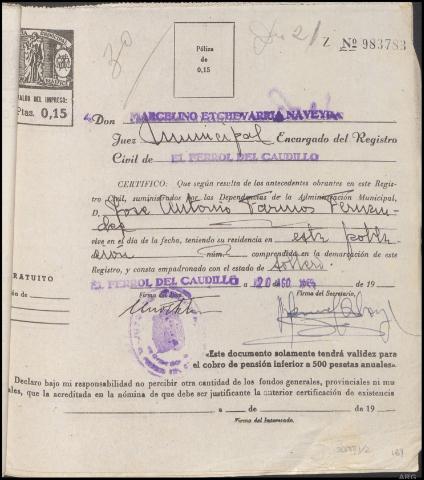 30
Z Nº 983783
Póliza
de
0,15
VALOR DEL IMPRESO:
Ptas. 0,15
Don MARCELINO ETCHEVARRIA NAVEYDA
Juez Municipal Encargado del Registro
Civil de EL FERROL DEL CAUDILLO
CERTIFICO: Que según resulta de los antecedentes obrantes en este Regis-
tro Civil, suministrados por las Dependencias de la Administración Municipal,
D. Jose Antonio Farinos Fernan-
dez
vive en el día de la fecha, teniendo su residencia en esta pobla
cion núm. comprendida en la demarcación de este
Registro, y consta empadronado con el estado de soltero
GRATUITO
EL FERROL DEL CAUDILLO a 20 AGO 19
ón de
Firma del Juez,
Firma del Secretario,
«Este documento solamente tendrá validez para
el cobro de pensión inferior a 500 pesetas anuales».
Declaro bajo mi responsabilidad no percibir otra cantidad de los fondos generales, provinciales ni mu
ales, que la acreditada en la nómina de que debe ser justificante la anterior certificación de existencia
a de de 19
Firma del Interesado.
167
ARG